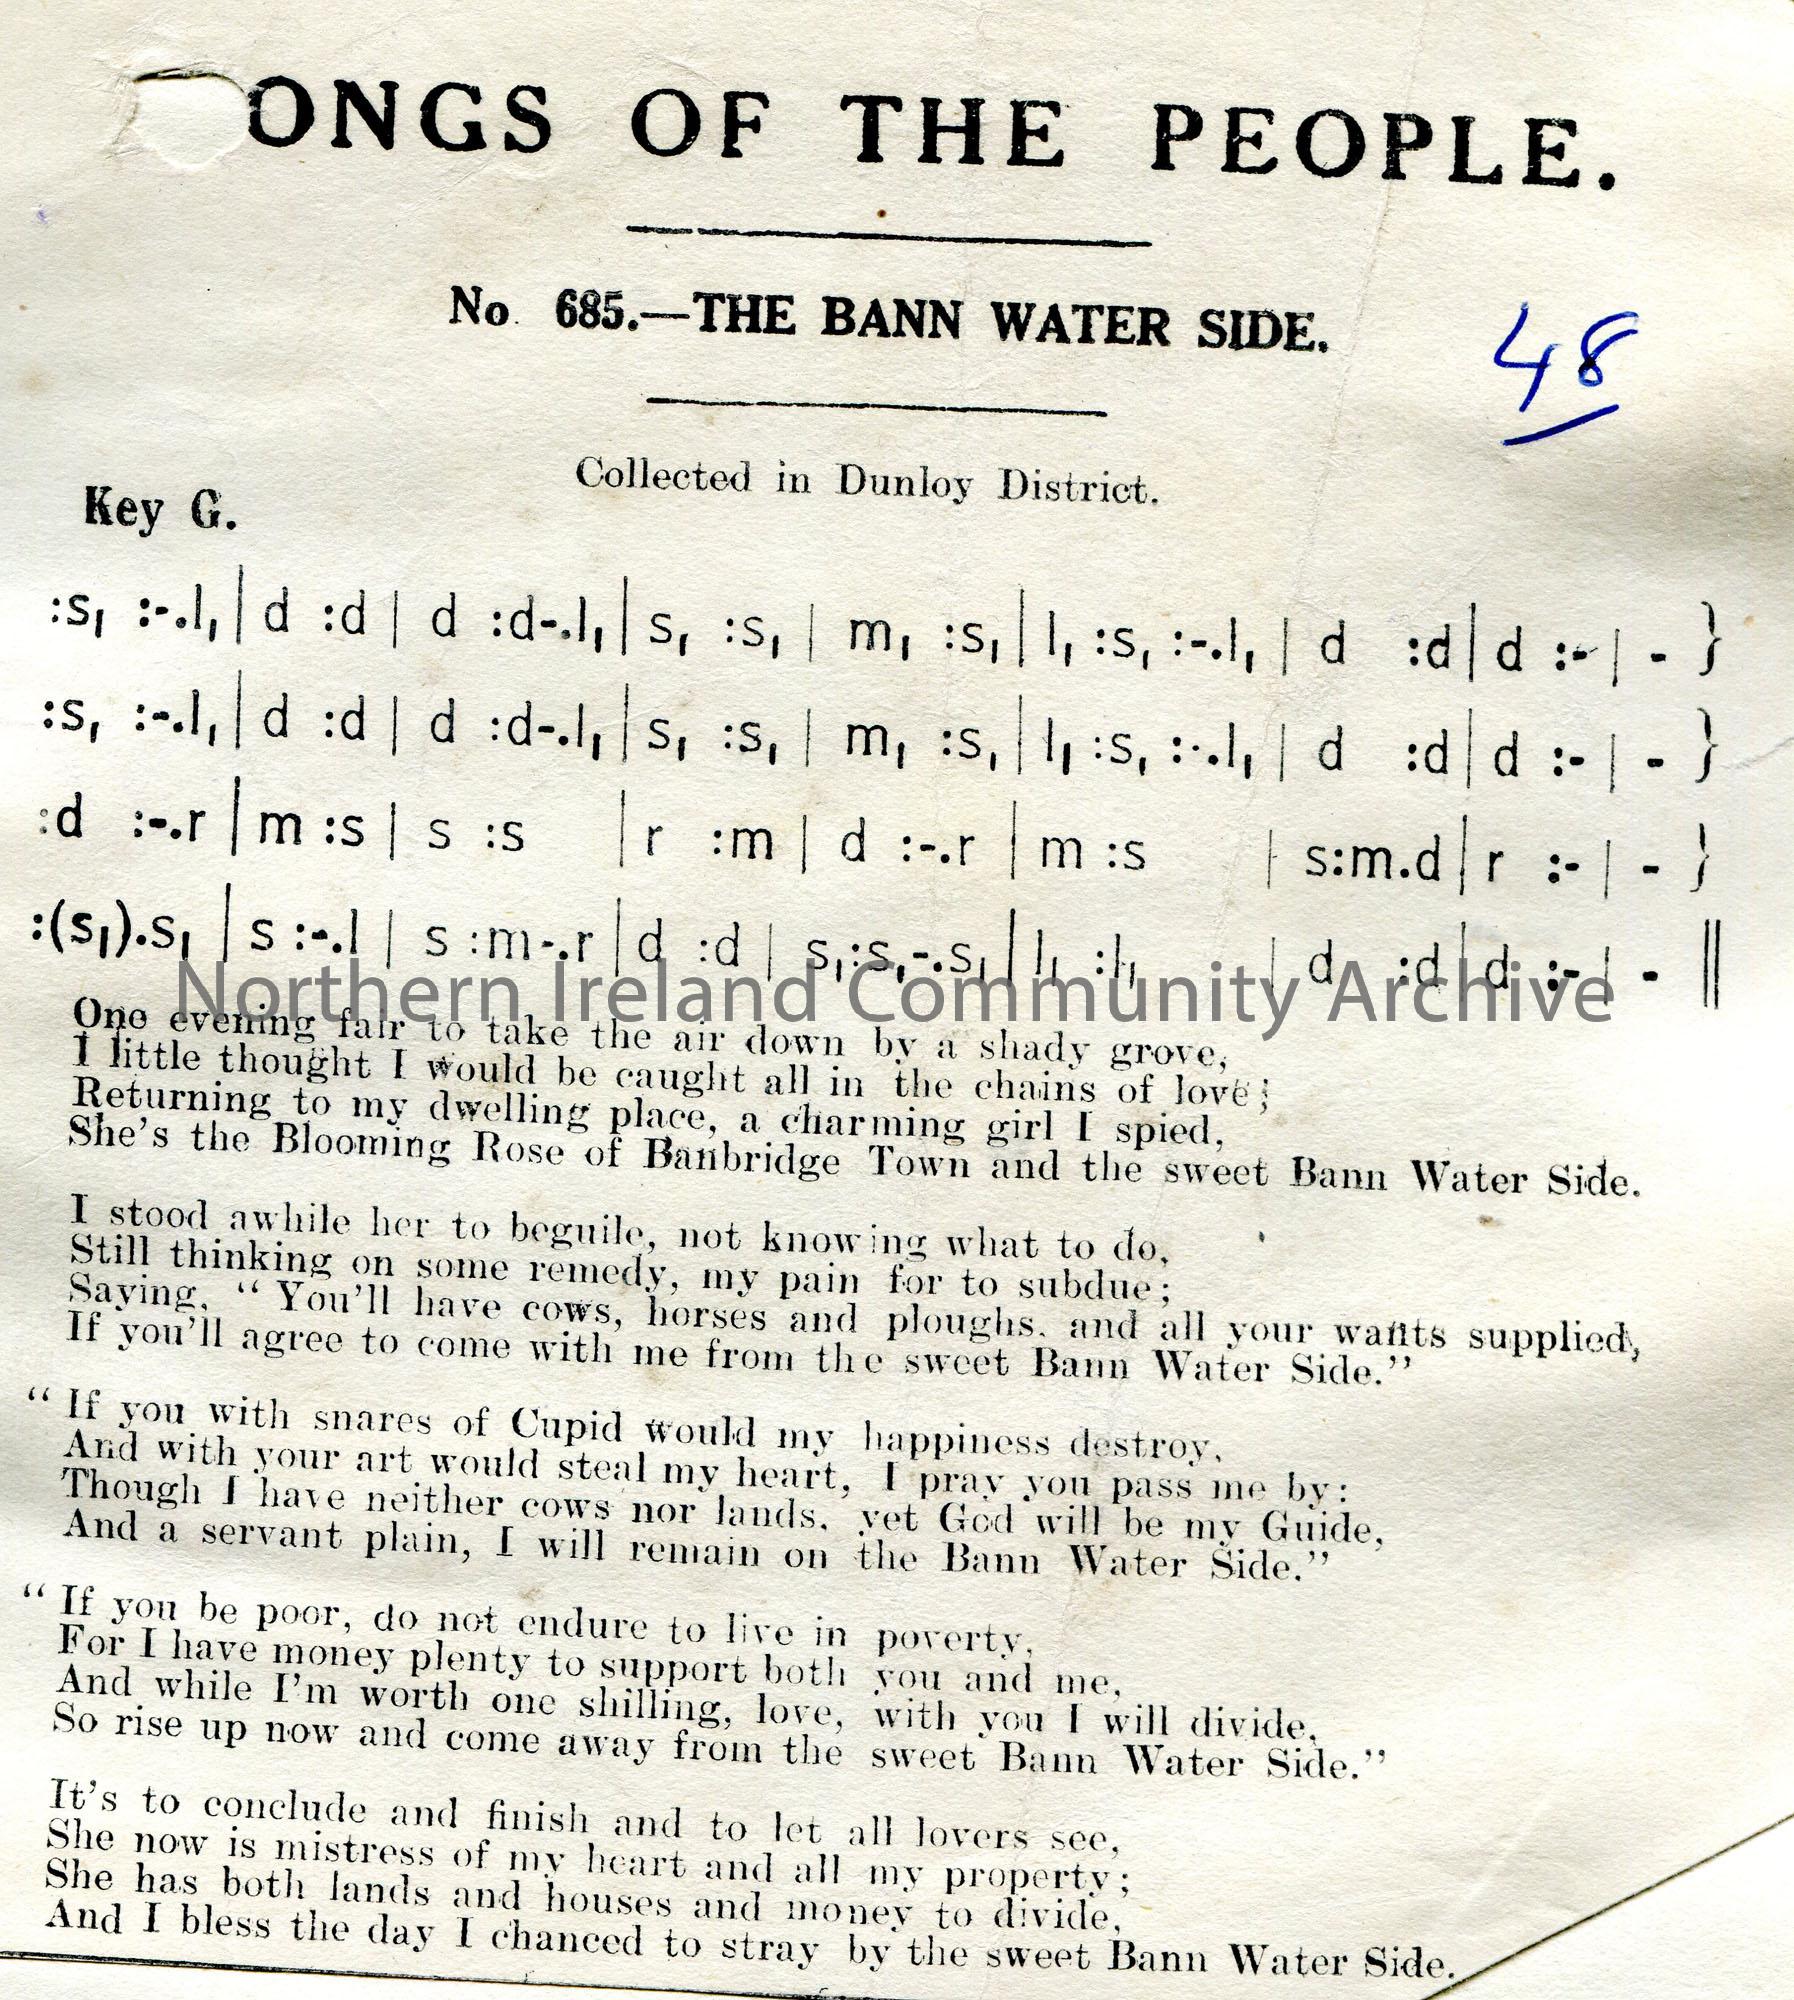 ONGS OF THE PEOPLE.
No. 685.—THE BANN WATER SIDE.
48
Collected in Dunloy District.
Key G.
:s, :-.l, | d :d | d :d-.l, | s, :s, | m, :s, | l, :s, :-.l, | d :d | d :- | - }
:s, :-.l, | d :d | d :d-.l, | s, :s, | m, :s, | l, :s, :-.l, | d :d | d :- | - }
:d :-.r | m :s | s :s | r :m | d :-.r | m :s | s:m.d | r :- | - }
:(s,).s, | s :-.l | s :m-.r | d :d | s,:s,-.s, | l, :l, | d :d | d :- | - ||
Northern Ireland Community Archive
One evening fair to take the air down by a shady grove,
I little thought I would be caught all in the chains of love;
Returning to my dwelling place, a charming girl I spied,
She's the Blooming Rose of Banbridge Town and the sweet Bann Water Side.
I stood awhile her to beguile, not knowing what to do,
Still thinking on some remedy, my pain for to subdue;
Saying, " You'll have cows, horses and ploughs, and all your wants supplied,
If you'll agree to come with me from the sweet Bann Water Side."
" If you with snares of Cupid would my happiness destroy,
And with your art would steal my heart, I pray you pass me by:
Though I have neither cows nor lands, yet God will be my Guide,
And a servant plain, I will remain on the Bann Water Side."
" If you be poor, do not endure to live in poverty,
For I have money plenty to support both you and me,
And while I'm worth one shilling, love, with you I will divide,
So rise up now and come away from the sweet Bann Water Side."
It's to conclude and finish and to let all lovers see,
She now is mistress of my heart and all my property;
She has both lands and houses and money to divide,
And I bless the day I chanced to stray by the sweet Bann Water Side.